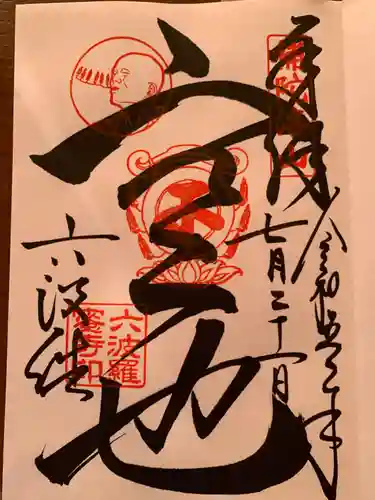 奉拝
令和五年
七月二十一日
空也
六波羅
六波羅
蜜寺印